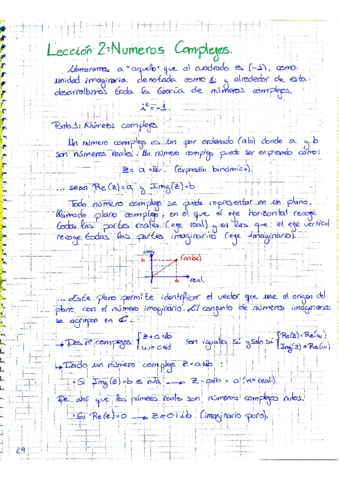 Lección 2: Numeros Complejos.
Llamaremos a "aquello" que al cuadrado es (-1), como
unidad imaginaria denotada como i; y alrededor de esta
desarrollamos toda la teoría de números complejos.
i²=-1.
Punto 1: Números complejos
Un número complejo es un par ordenado (a,b) donde a y b
son números reales. Un número complejo puede ser expresado como:
Z = a+ib. (expresión binómica).
... sean Re(z)=a y Img(z)=b
Todo número complejo se puede representar en un plano,
llamado plano complejo, en el que el eje horizontal recoge
todas las partes reales (eje real) y en las que el eje vertical
recoge todas las partes imaginarias (eje imaginario).
img
b (a+bi)
a real
... este plano permite identificar el vector que une el origen del
plano con el número imaginario. El conjunto de números imaginarios
se agrupan en C.
Dos nº complejos { z=a+ib w=c+id son iguales si y solo si { Re(z)=Re(w) Img(z)=Re(w)
Dado un número complejo z=a+ib:
· Si Img(z)=b es nula → z=a+ib=a (nº real).
De ahí que los números reales son números complejos nulos.
· Si Re(z)=0 → z=0+ib (imaginario puro).
29